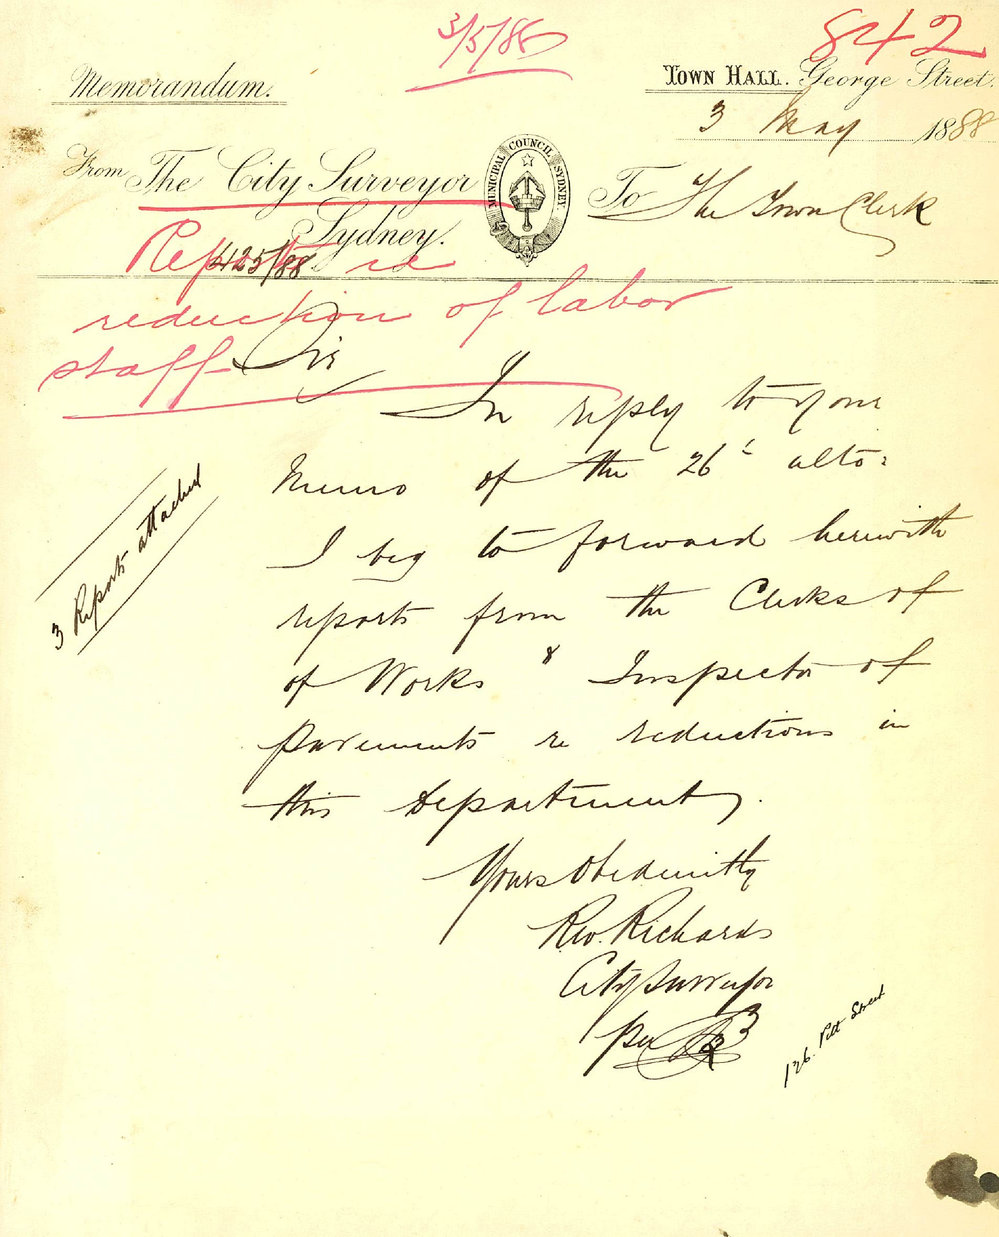 3/5/88
842
Memorandum.
TOWN HALL. George Street.
3 May 1888
From The City Surveyor
Sydney.
MUNICIPAL COUNCIL SYDNEY.
To The Town Clerk
425/88
Report re
reduction of labor
staff
Sir
In reply to your
Memo of the 26th ulto:
I beg to forward herewith
reports from the Clerks of
of Works & Inspector of
Pavements re reductions in
this Department.
3 Reports attached
Yours Obediently
Richards
City Surveyor
Per
126. Pitt Street